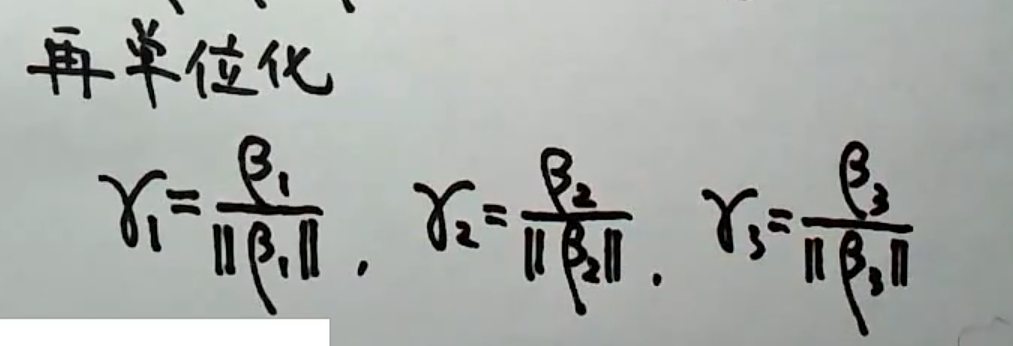 再单位化
γ₁=β₁/‖β₁‖, γ₂=β₂/‖β₂‖. γ₃=β₃/‖β₃‖